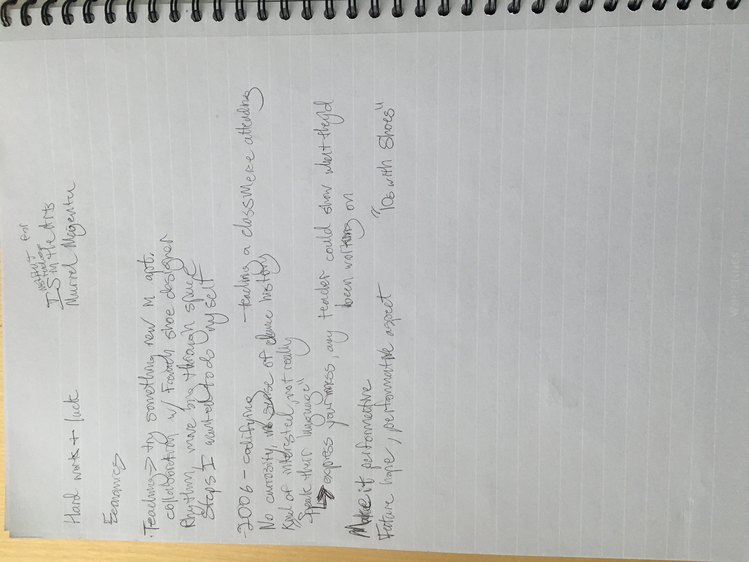 Institute for
Studies
IS in the Arts
Hard work + luck
Murrel Magenta
Economics
· Teaching → try something new in apt.
collaboration w/ French shoe designer
Rhythm, move big through space
Steps I wanted to do myself
-2006 - codifying - teaching a class mere attending
No curiosity, no sense of dance history
Kind of interested, not really
"Speak their language"
↳ express your mess, any teacher could show what they'd
been working on
Make it performative
Future hope, performative aspect "Is with Shoes"